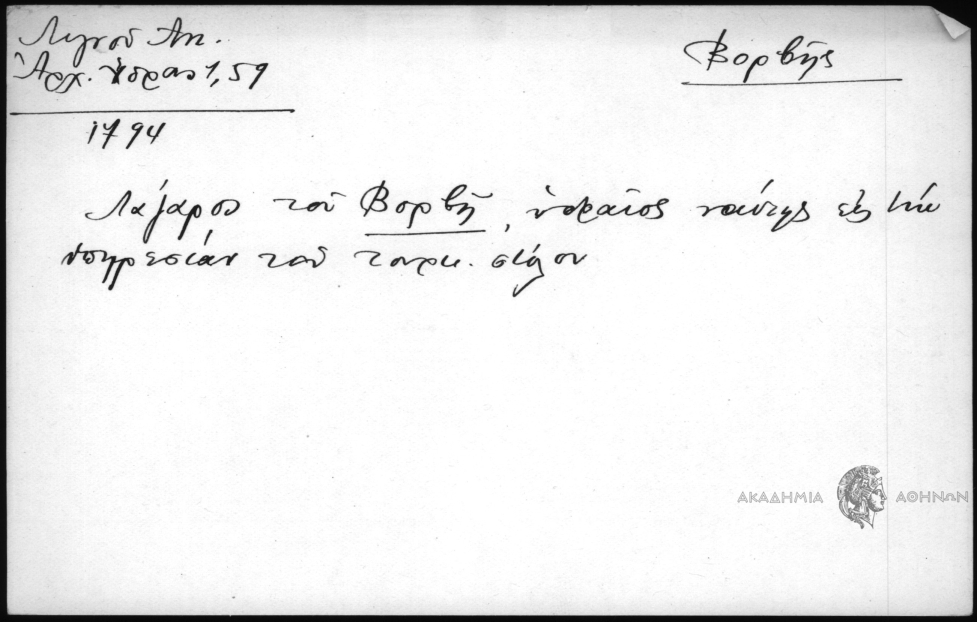 Λιγνοῦ Ἀντ.
Ἀρχ. Ὕδρας 1, 59
Βορβῆς
1794
Λάζαρος τοῦ Βορβῆ, ὑδραῖος ναύτης εἰς τὴν
ὑπηρεσίαν τοῦ τουρκ. στόλου
ΑΚΑΔΗΜΙΑ ΑΘΗΝΩΝ